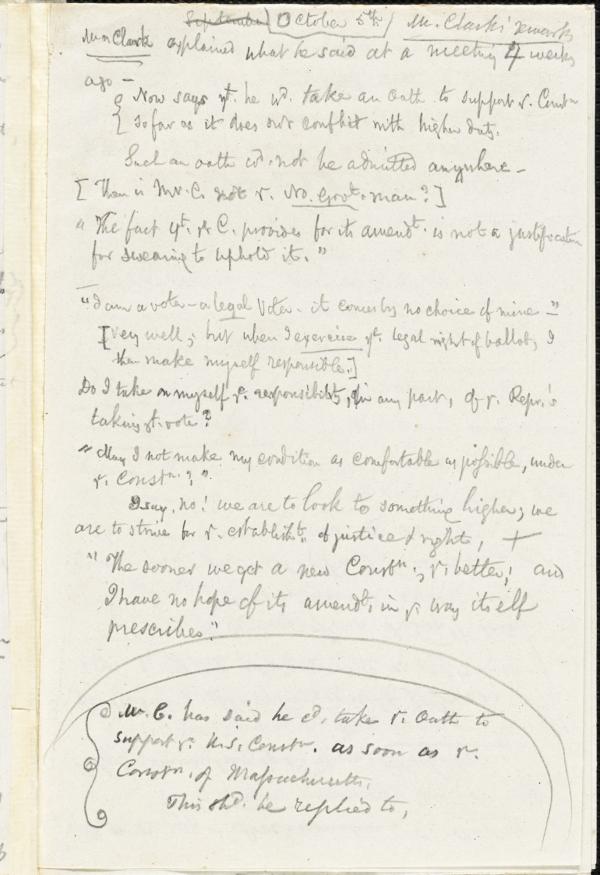 September October 5th Mr. Clark's remarks
Mr. Clark explained what he said at a meeting 4 weeks
ago —
Now says yt. he wd. take an oath to support ye. Constn
so far as it does not conflict with higher duty.
Such an oath wd. not be admitted anywhere —
[Then is Mr. C. not ye. No. Govt. man?]
"The fact yt. ye C. provides for its amendt. is not a justification
for swearing to uphold it."
"I am a voter – a legal voter. it comes by no choice of mine –"
[Very well; but when I exercise yt. legal right of ballot, I
then make myself responsible.]
Do I take on myself ye. responsibility, in any part, of ye. Repr.'s
taking yt. vote?
"May I not make my condition as comfortable as possible, under
ye. Constn.?".
I say, no! we are to look to something higher; we
are to strive for ye. establisht. of justice & right, +
"The sooner we get a new Constn., ye. better; and
I have no hope of its amendt. in ye way itself
prescribes."
Mr. C. has said he cd. take ye. Oath to
support ye. U.S. Constn. as soon as ye.
Constn. of Massachusetts.
This shd. be replied to,